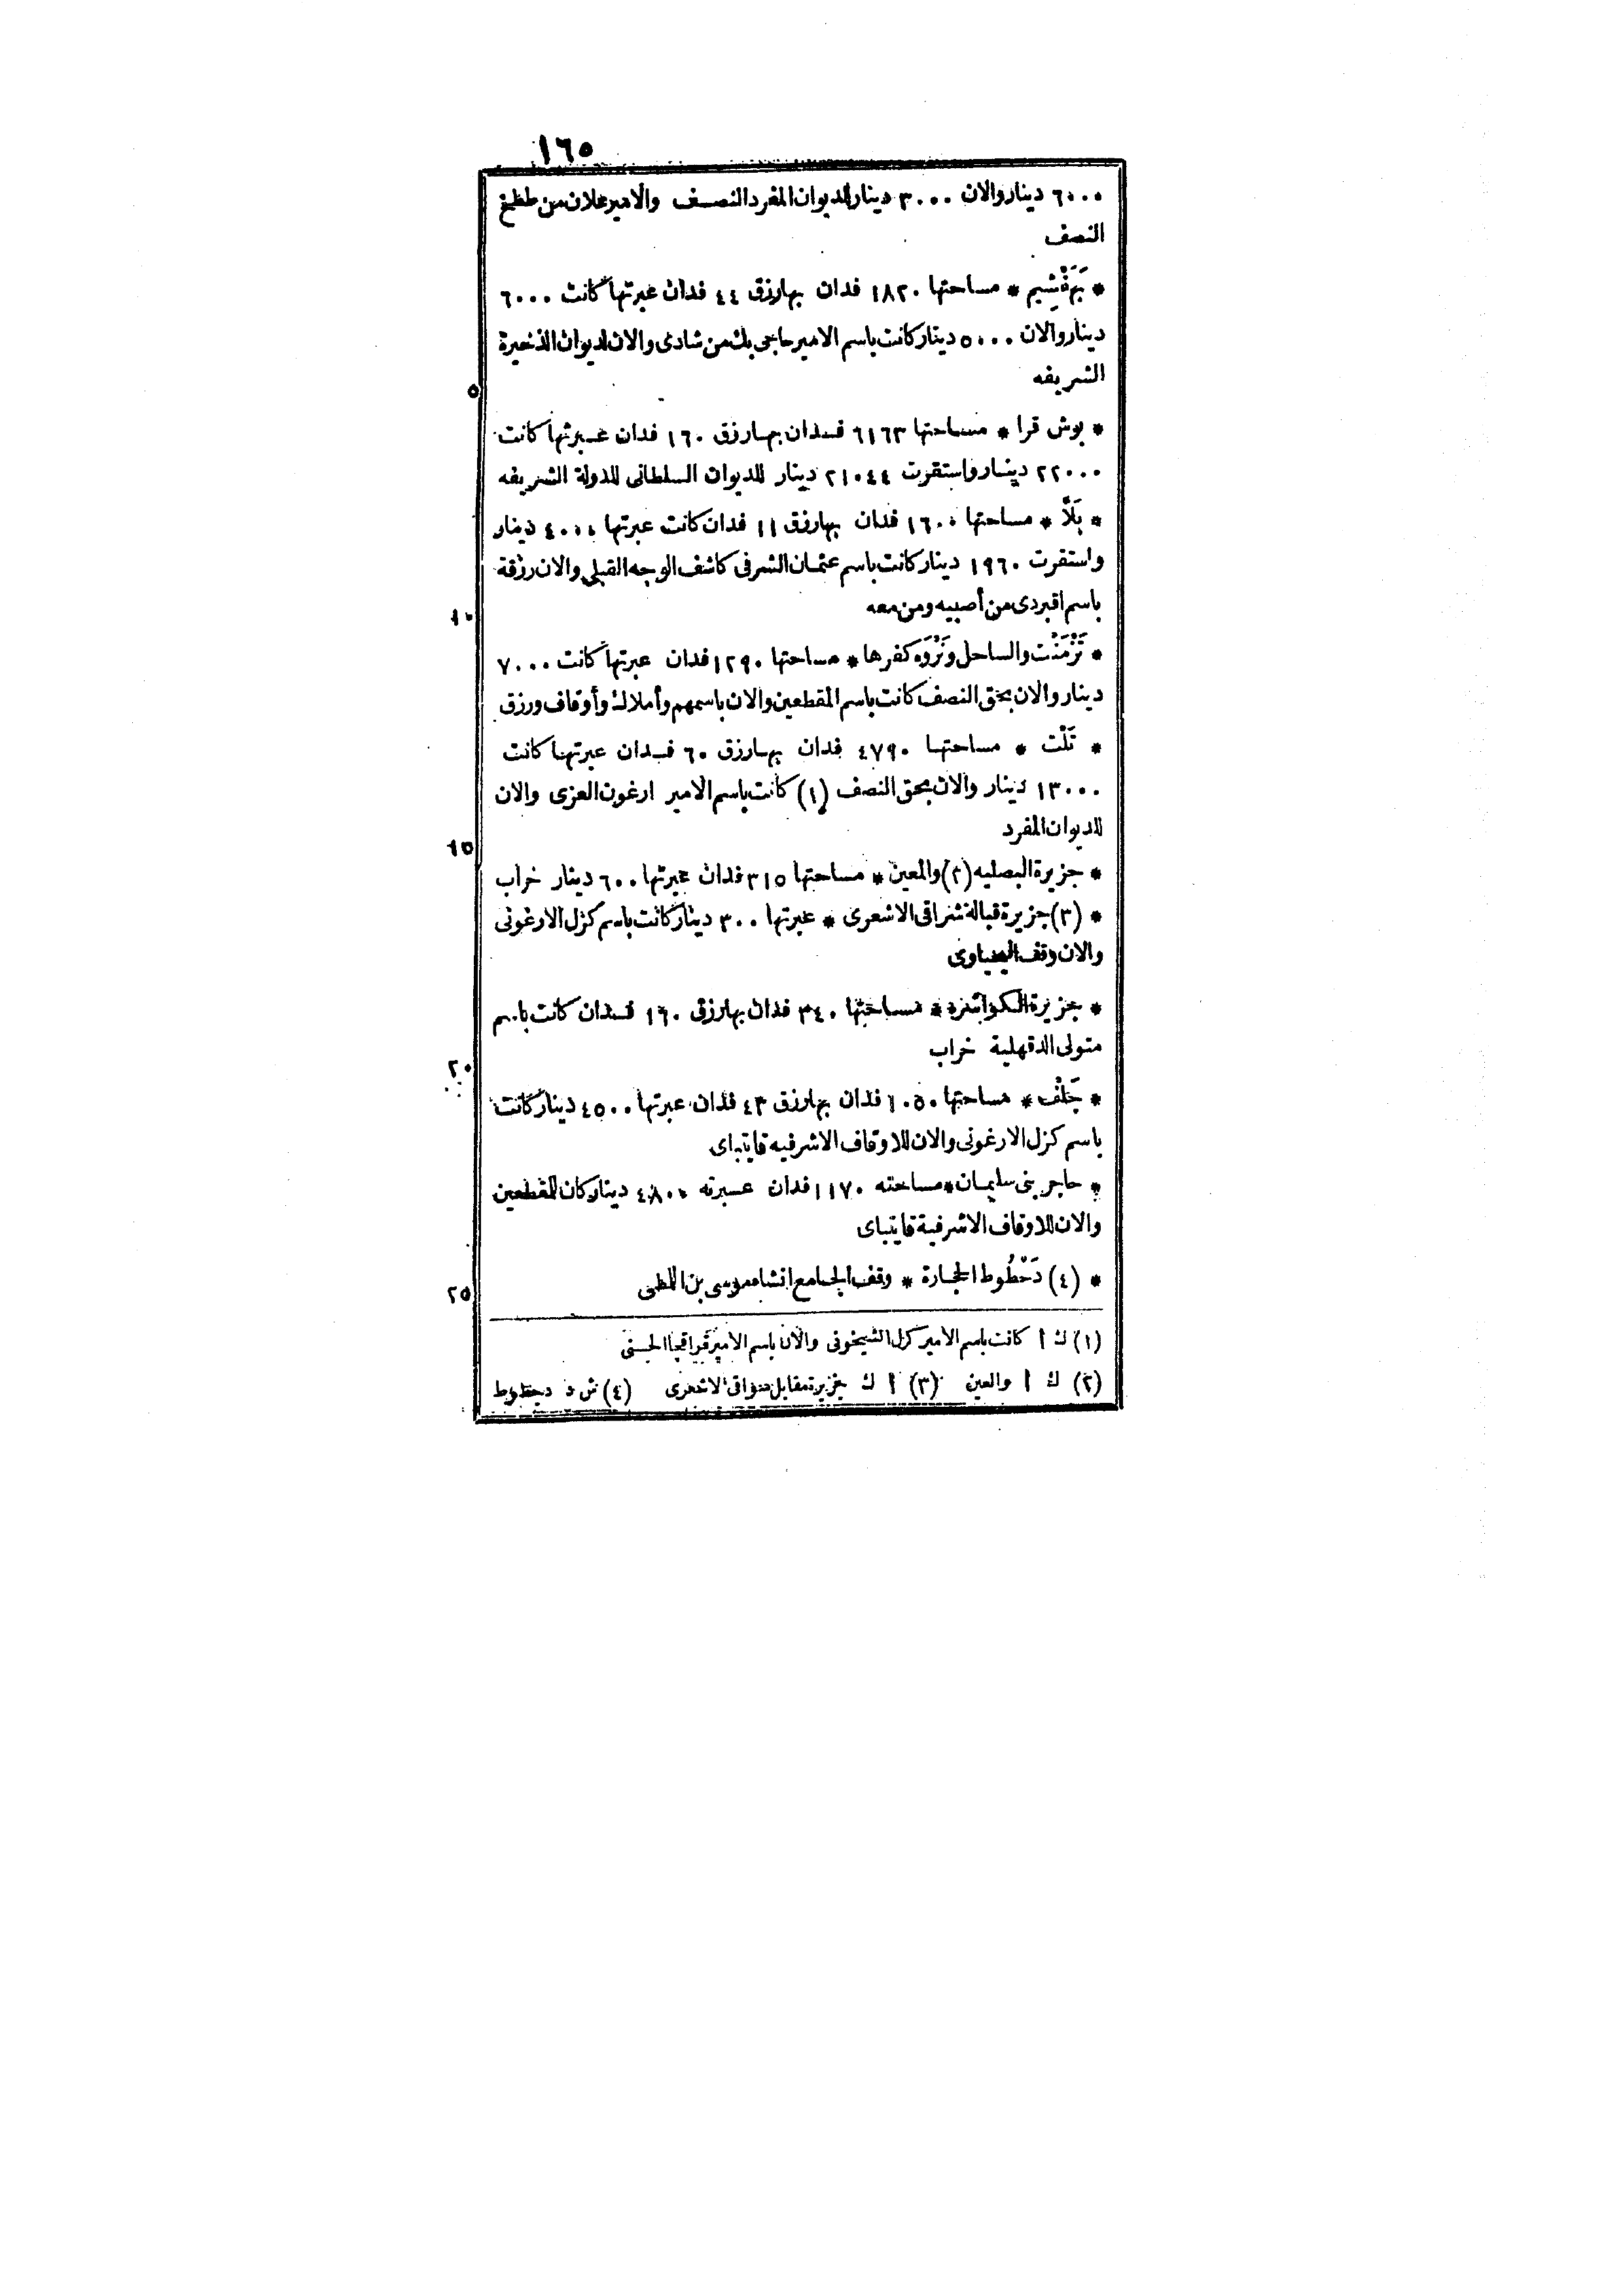 ١٦٥
٦٠٠٠ دينار والان ٣٠٠٠ دينار للديوان المفرد النصف والامير علان من ططخ
النصف
* بَمَفْشِيم * مساحتها ١٨٢٠ فدان بها رزق ٤٤ فدان عبرتها كانت ٦٠٠٠
دينار والان ٥٠٠٠ دينار كانت باسم الامير حاجى بك من شادى والان لديوان الذخيرة
الشريفه
٥
* بوش قرا * مساحتها ٦١٦٣ فدان بها رزق ١٦٠ فدان عبرتها كانت
٢٢٠٠٠ دينار واستقرت ٢١٠٤٤ دينار للديوان السلطانى للدولة الشريفه
* بَلَّا * مساحتها ١٦٠٠ فدان بها رزق ١١ فدان كانت عبرتها ٤٠٠٠ دينار
واستقرت ١٩٦٠ دينار كانت باسم عثمان الشرفى كاشف الوجه القبلى والان رزقة
باسم اقبردى من أصبيه ومن معه
١٠
* تَزْمَنْت والساحل ونَزْوَه كفرها * مساحتها ١٢٩٠ فدان عبرتها كانت ٧٠٠٠
دينار والان بحق النصف كانت باسم المقطعين والان باسمهم وأملاك وأوقاف ورزق
* تَلْت * مساحتها ٤٧٩٠ فدان بها رزق ٦٠ فدان عبرتها كانت
١٣٠٠٠ دينار والان بحق النصف (١) كانت باسم الامير ارغون العزى والان
للديوان المفرد
١٥
* جزيرة البصليه (٢) والمعين * مساحتها ٣١٥ فدان عبرتها ٦٠٠ دينار خراب
* (٣) جزيرة قبالة شراقى الاشعرى * عبرتها ٣٠٠ دينار كانت باسم كزل الارغونى
والان وقف
* جزيرة * مساحتها ٣٤٠ فدان بها رزق ١٦٠ فدان كانت باسم
متولى الدقهلية خراب
٢٠
* جَلْف * مساحتها ١٠٥٠ فدان بها رزق ٤٣ فدان عبرتها ٤٥٠٠ دينار كانت
باسم كزل الارغونى والان للاوقاف الاشرفيه قايتباى
* حاجر بنى سليمان * مساحته ١١٧٠ فدان عبرته ٤٨٠٠ دينار كان للمقطعين
والان للاوقاف الاشرفية قايتباى
* (٤) دَحْطُوط الحجارة * وقف الجامع انشاء موسى بن
٢٥
(١) ك أ كانت باسم الامير كزل الشيخونى والان باسم الامير قراقجا الحسنى
(٢) ك أ والعين (٣) أ ك جزيرة مقابل سواقى الاشعرى (٤) ش د دحظوط